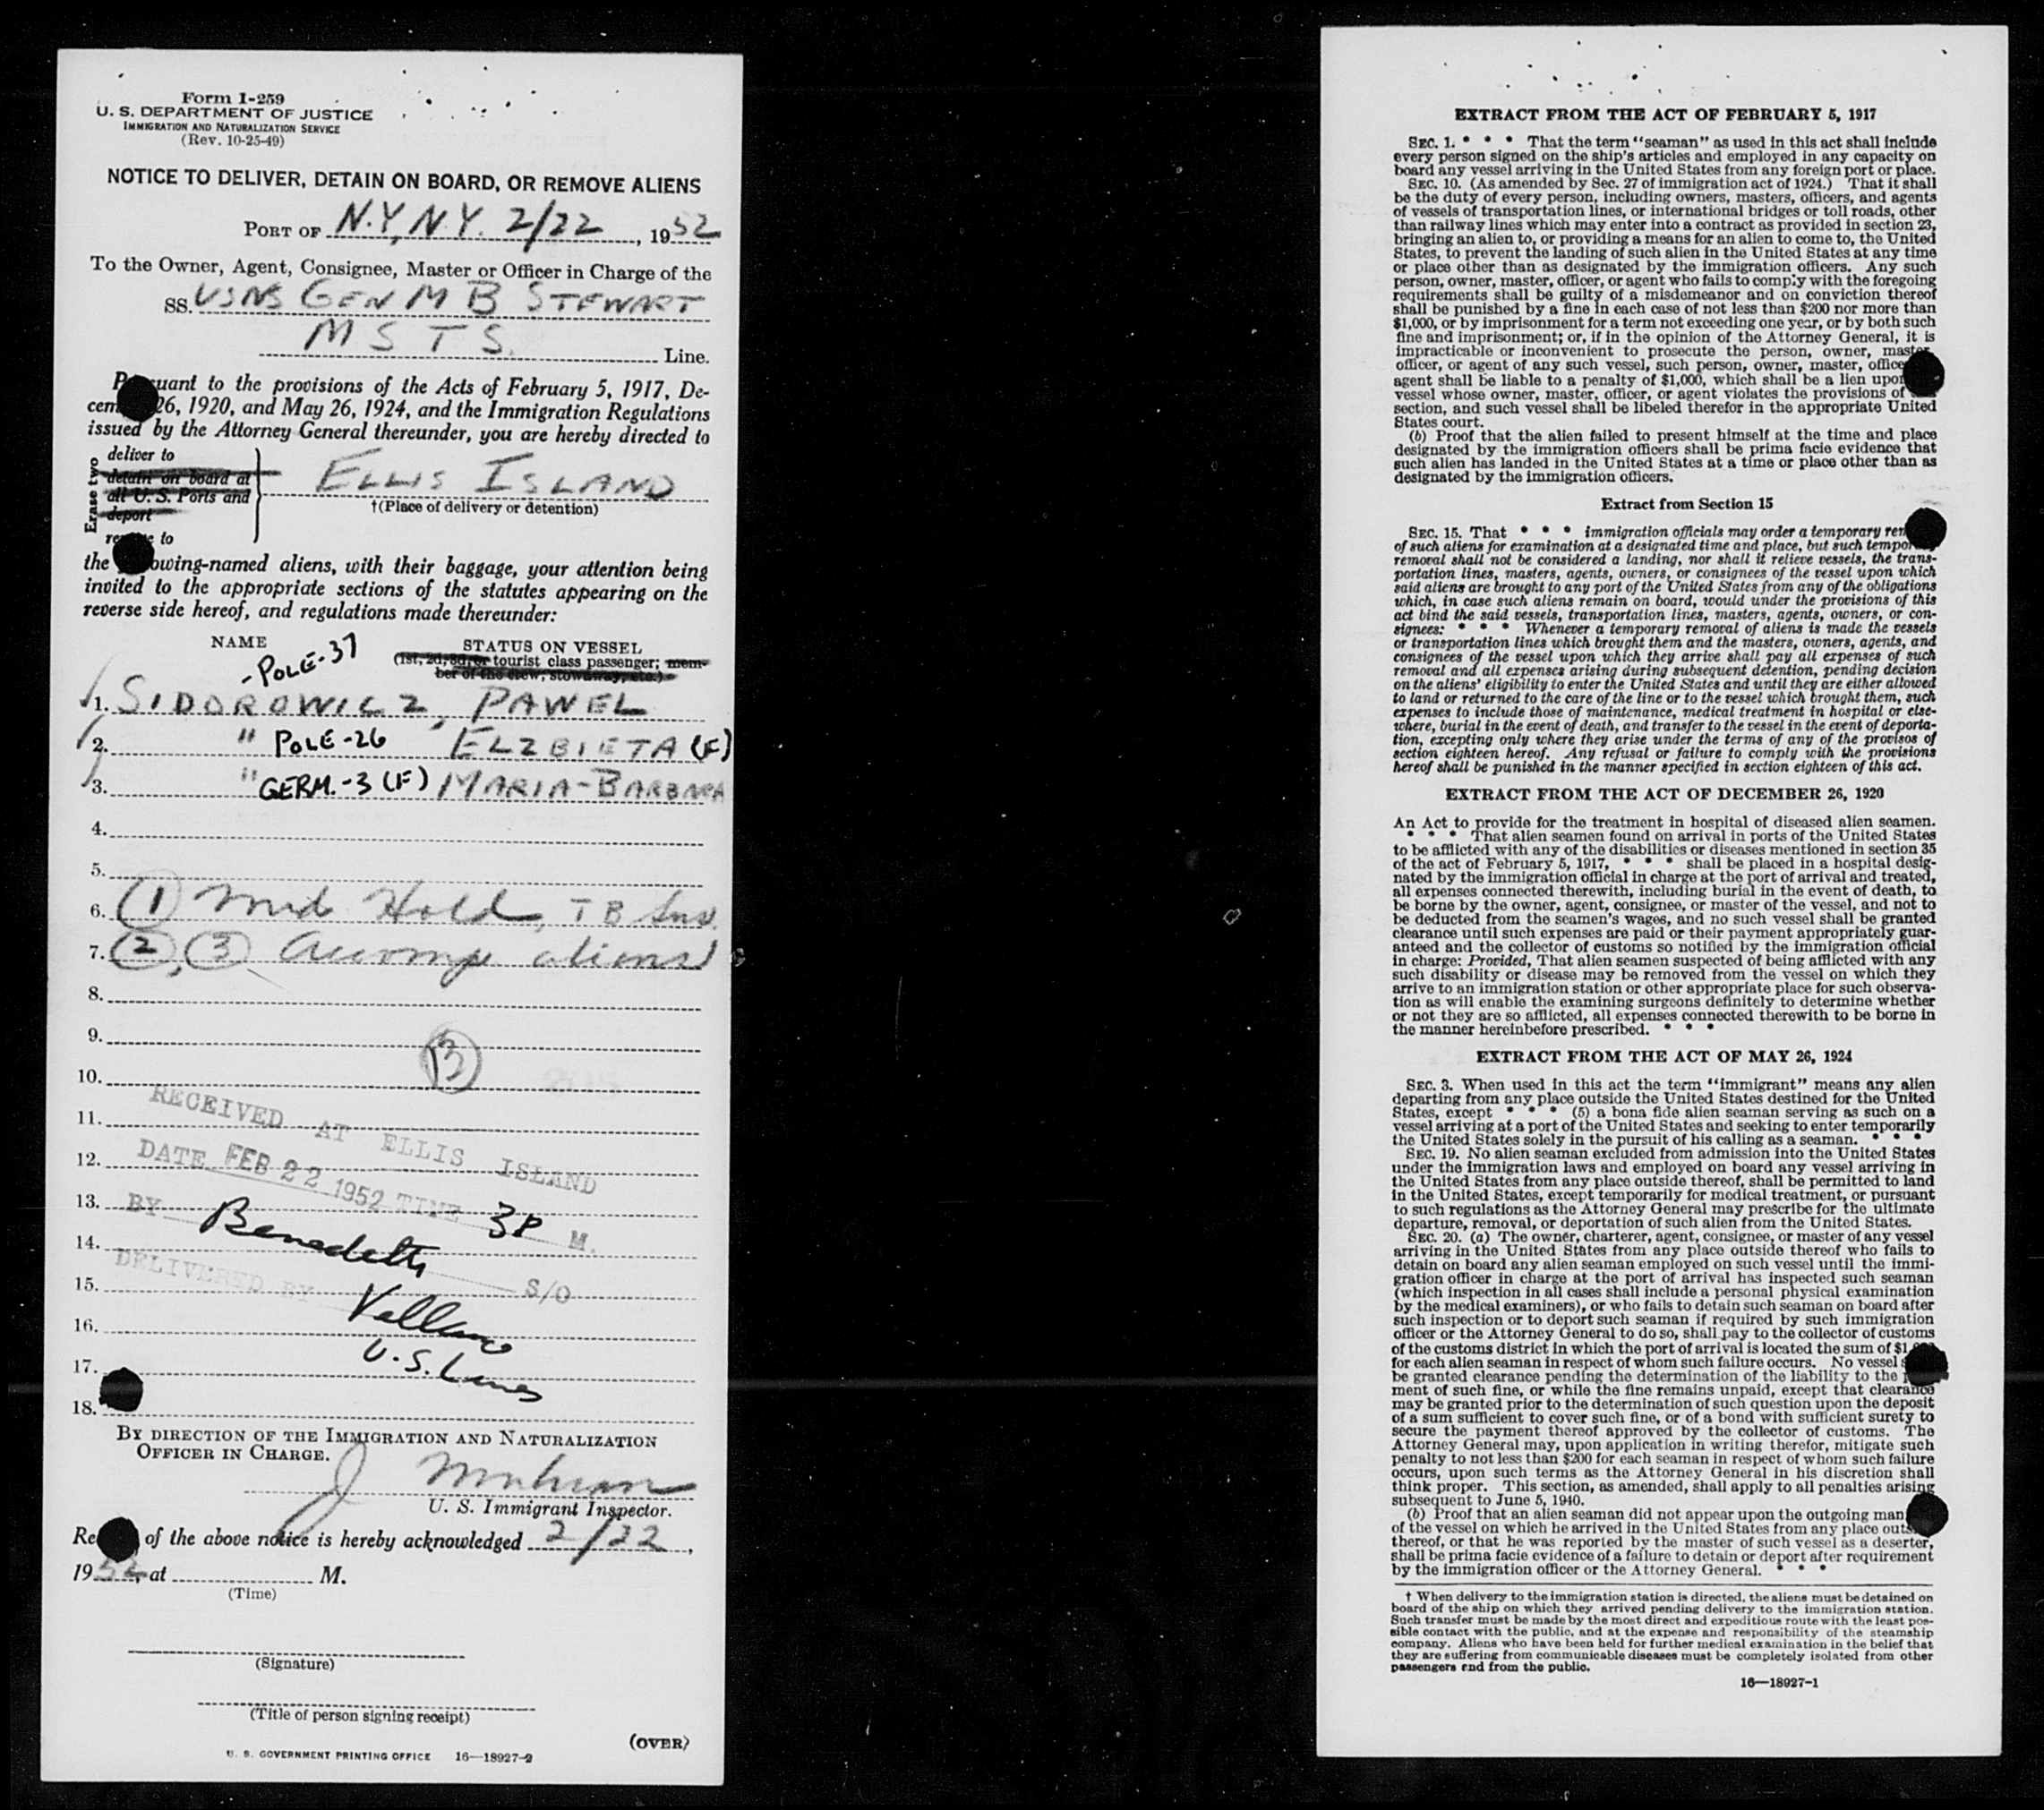 Form I-259
U. S. DEPARTMENT OF JUSTICE
IMMIGRATION AND NATURALIZATION SERVICE
(Rev. 10-25-49)
NOTICE TO DELIVER, DETAIN ON BOARD, OR REMOVE ALIENS
PORT OF N.Y, N.Y. 2/22, 1952
To the Owner, Agent, Consignee, Master or Officer in Charge of the
SS. USNS GEN M B STEWART
M S T S. Line.
P uant to the provisions of the Acts of February 5, 1917, De-
cem 26, 1920, and May 26, 1924, and the Immigration Regulations
issued by the Attorney General thereunder, you are hereby directed to
Erase two
deliver to
detain on board at
all U. S. Ports and
deport
re e to
ELLIS ISLAND
†(Place of delivery or detention)
the owing-named aliens, with their baggage, your attention being
invited to the appropriate sections of the statutes appearing on the
reverse side hereof, and regulations made thereunder:
NAME STATUS ON VESSEL
(1st, 2d, 3d, or tourist class passenger; mem-
ber of the crew, stowaway, etc.)
- POLE-37
1. SIDOROWICZ, PAWEL
2. " POLE-26 ELZBIETA (F)
3. " GERM.-3 (F) MARIA-BARBARA
4.
5.
6. (1) Med Hold, TB Inv.
7. (2), (3) Accomp aliens
8.
9.
3
10.
RECEIVED AT ELLIS ISLAND
11.
12.
DATE FEB 22 1952 TIME 3P M.
13.
BY Benedetti S/O
14.
DELIVERED BY
15.
16.
U.S. Lines
17.
18.
BY DIRECTION OF THE IMMIGRATION AND NATURALIZATION
OFFICER IN CHARGE.
J
U. S. Immigrant Inspector.
Re of the above notice is hereby acknowledged 2/22,
1952, at M.
(Time)
(Signature)
(Title of person signing receipt)
(OVER)
U. S. GOVERNMENT PRINTING OFFICE 16—18927-2
EXTRACT FROM THE ACT OF FEBRUARY 5, 1917
SEC. 1. * * * That the term "seaman" as used in this act shall include
every person signed on the ship's articles and employed in any capacity on
board any vessel arriving in the United States from any foreign port or place.
SEC. 10. (As amended by Sec. 27 of immigration act of 1924.) That it shall
be the duty of every person, including owners, masters, officers, and agents
of vessels of transportation lines, or international bridges or toll roads, other
than railway lines which may enter into a contract as provided in section 23,
bringing an alien to, or providing a means for an alien to come to, the United
States, to prevent the landing of such alien in the United States at any time
or place other than as designated by the immigration officers. Any such
person, owner, master, officer, or agent who fails to comply with the foregoing
requirements shall be guilty of a misdemeanor and on conviction thereof
shall be punished by a fine in each case of not less than $200 nor more than
$1,000, or by imprisonment for a term not exceeding one year, or by both such
fine and imprisonment; or, if in the opinion of the Attorney General, it is
impracticable or inconvenient to prosecute the person, owner, master,
officer, or agent of any such vessel, such person, owner, master, office
agent shall be liable to a penalty of $1,000, which shall be a lien upon
vessel whose owner, master, officer, or agent violates the provisions of
section, and such vessel shall be libeled therefor in the appropriate United
States court.
(b) Proof that the alien failed to present himself at the time and place
designated by the immigration officers shall be prima facie evidence that
such alien has landed in the United States at a time or place other than as
designated by the immigration officers.
Extract from Section 15
SEC. 15. That * * * immigration officials may order a temporary rem
of such aliens for examination at a designated time and place, but such temporary
removal shall not be considered a landing, nor shall it relieve vessels, the trans-
portation lines, masters, agents, owners, or consignees of the vessel upon which
said aliens are brought to any port of the United States from any of the obligations
which, in case such aliens remain on board, would under the provisions of this
act bind the said vessels, transportation lines, masters, agents, owners, or con-
signees: * * * Whenever a temporary removal of aliens is made the vessels
or transportation lines which brought them and the masters, owners, agents, and
consignees of the vessel upon which they arrive shall pay all expenses of such
removal and all expenses arising during subsequent detention, pending decision
on the aliens' eligibility to enter the United States and until they are either allowed
to land or returned to the care of the line or to the vessel which brought them, such
expenses to include those of maintenance, medical treatment in hospital or else-
where, burial in the event of death, and transfer to the vessel in the event of deporta-
tion, excepting only where they arise under the terms of any of the provisos of
section eighteen hereof. Any refusal or failure to comply with the provisions
hereof shall be punished in the manner specified in section eighteen of this act.
EXTRACT FROM THE ACT OF DECEMBER 26, 1920
An Act to provide for the treatment in hospital of diseased alien seamen.
* * * That alien seamen found on arrival in ports of the United States
to be afflicted with any of the disabilities or diseases mentioned in section 35
of the act of February 5, 1917, * * * shall be placed in a hospital desig-
nated by the immigration official in charge at the port of arrival and treated,
all expenses connected therewith, including burial in the event of death, to
be borne by the owner, agent, consignee, or master of the vessel, and not to
be deducted from the seamen's wages, and no such vessel shall be granted
clearance until such expenses are paid or their payment appropriately guar-
anteed and the collector of customs so notified by the immigration official
in charge: Provided, That alien seamen suspected of being afflicted with any
such disability or disease may be removed from the vessel on which they
arrive to an immigration station or other appropriate place for such observa-
tion as will enable the examining surgeons definitely to determine whether
or not they are so afflicted, all expenses connected therewith to be borne in
the manner hereinbefore prescribed. * * *
EXTRACT FROM THE ACT OF MAY 26, 1924
SEC. 3. When used in this act the term "immigrant" means any alien
departing from any place outside the United States destined for the United
States, except * * * (5) a bona fide alien seaman serving as such on a
vessel arriving at a port of the United States and seeking to enter temporarily
the United States solely in the pursuit of his calling as a seaman. * * *
SEC. 19. No alien seaman excluded from admission into the United States
under the immigration laws and employed on board any vessel arriving in
the United States from any place outside thereof, shall be permitted to land
in the United States, except temporarily for medical treatment, or pursuant
to such regulations as the Attorney General may prescribe for the ultimate
departure, removal, or deportation of such alien from the United States.
SEC. 20. (a) The owner, charterer, agent, consignee, or master of any vessel
arriving in the United States from any place outside thereof who fails to
detain on board any alien seaman employed on such vessel until the immi-
gration officer in charge at the port of arrival has inspected such seaman
(which inspection in all cases shall include a personal physical examination
by the medical examiners), or who fails to detain such seaman on board after
such inspection or to deport such seaman if required by such immigration
officer or the Attorney General to do so, shall pay to the collector of customs
of the customs district in which the port of arrival is located the sum of $1
for each alien seaman in respect of whom such failure occurs. No vessel s
be granted clearance pending the determination of the liability to the p
ment of such fine, or while the fine remains unpaid, except that clearance
may be granted prior to the determination of such question upon the deposit
of a sum sufficient to cover such fine, or of a bond with sufficient surety to
secure the payment thereof approved by the collector of customs. The
Attorney General may, upon application in writing therefor, mitigate such
penalty to not less than $200 for each seaman in respect of whom such failure
occurs, upon such terms as the Attorney General in his discretion shall
think proper. This section, as amended, shall apply to all penalties arising
subsequent to June 5, 1940.
(b) Proof that an alien seaman did not appear upon the outgoing man
of the vessel on which he arrived in the United States from any place outs
thereof, or that he was reported by the master of such vessel as a deserter,
shall be prima facie evidence of a failure to detain or deport after requirement
by the immigration officer or the Attorney General. * * *
† When delivery to the immigration station is directed, the aliens must be detained on
board of the ship on which they arrived pending delivery to the immigration station.
Such transfer must be made by the most direct and expeditious route with the least pos-
sible contact with the public, and at the expense and responsibility of the steamship
company. Aliens who have been held for further medical examination in the belief that
they are suffering from communicable diseases must be completely isolated from other
passengers and from the public.
16—18927-1